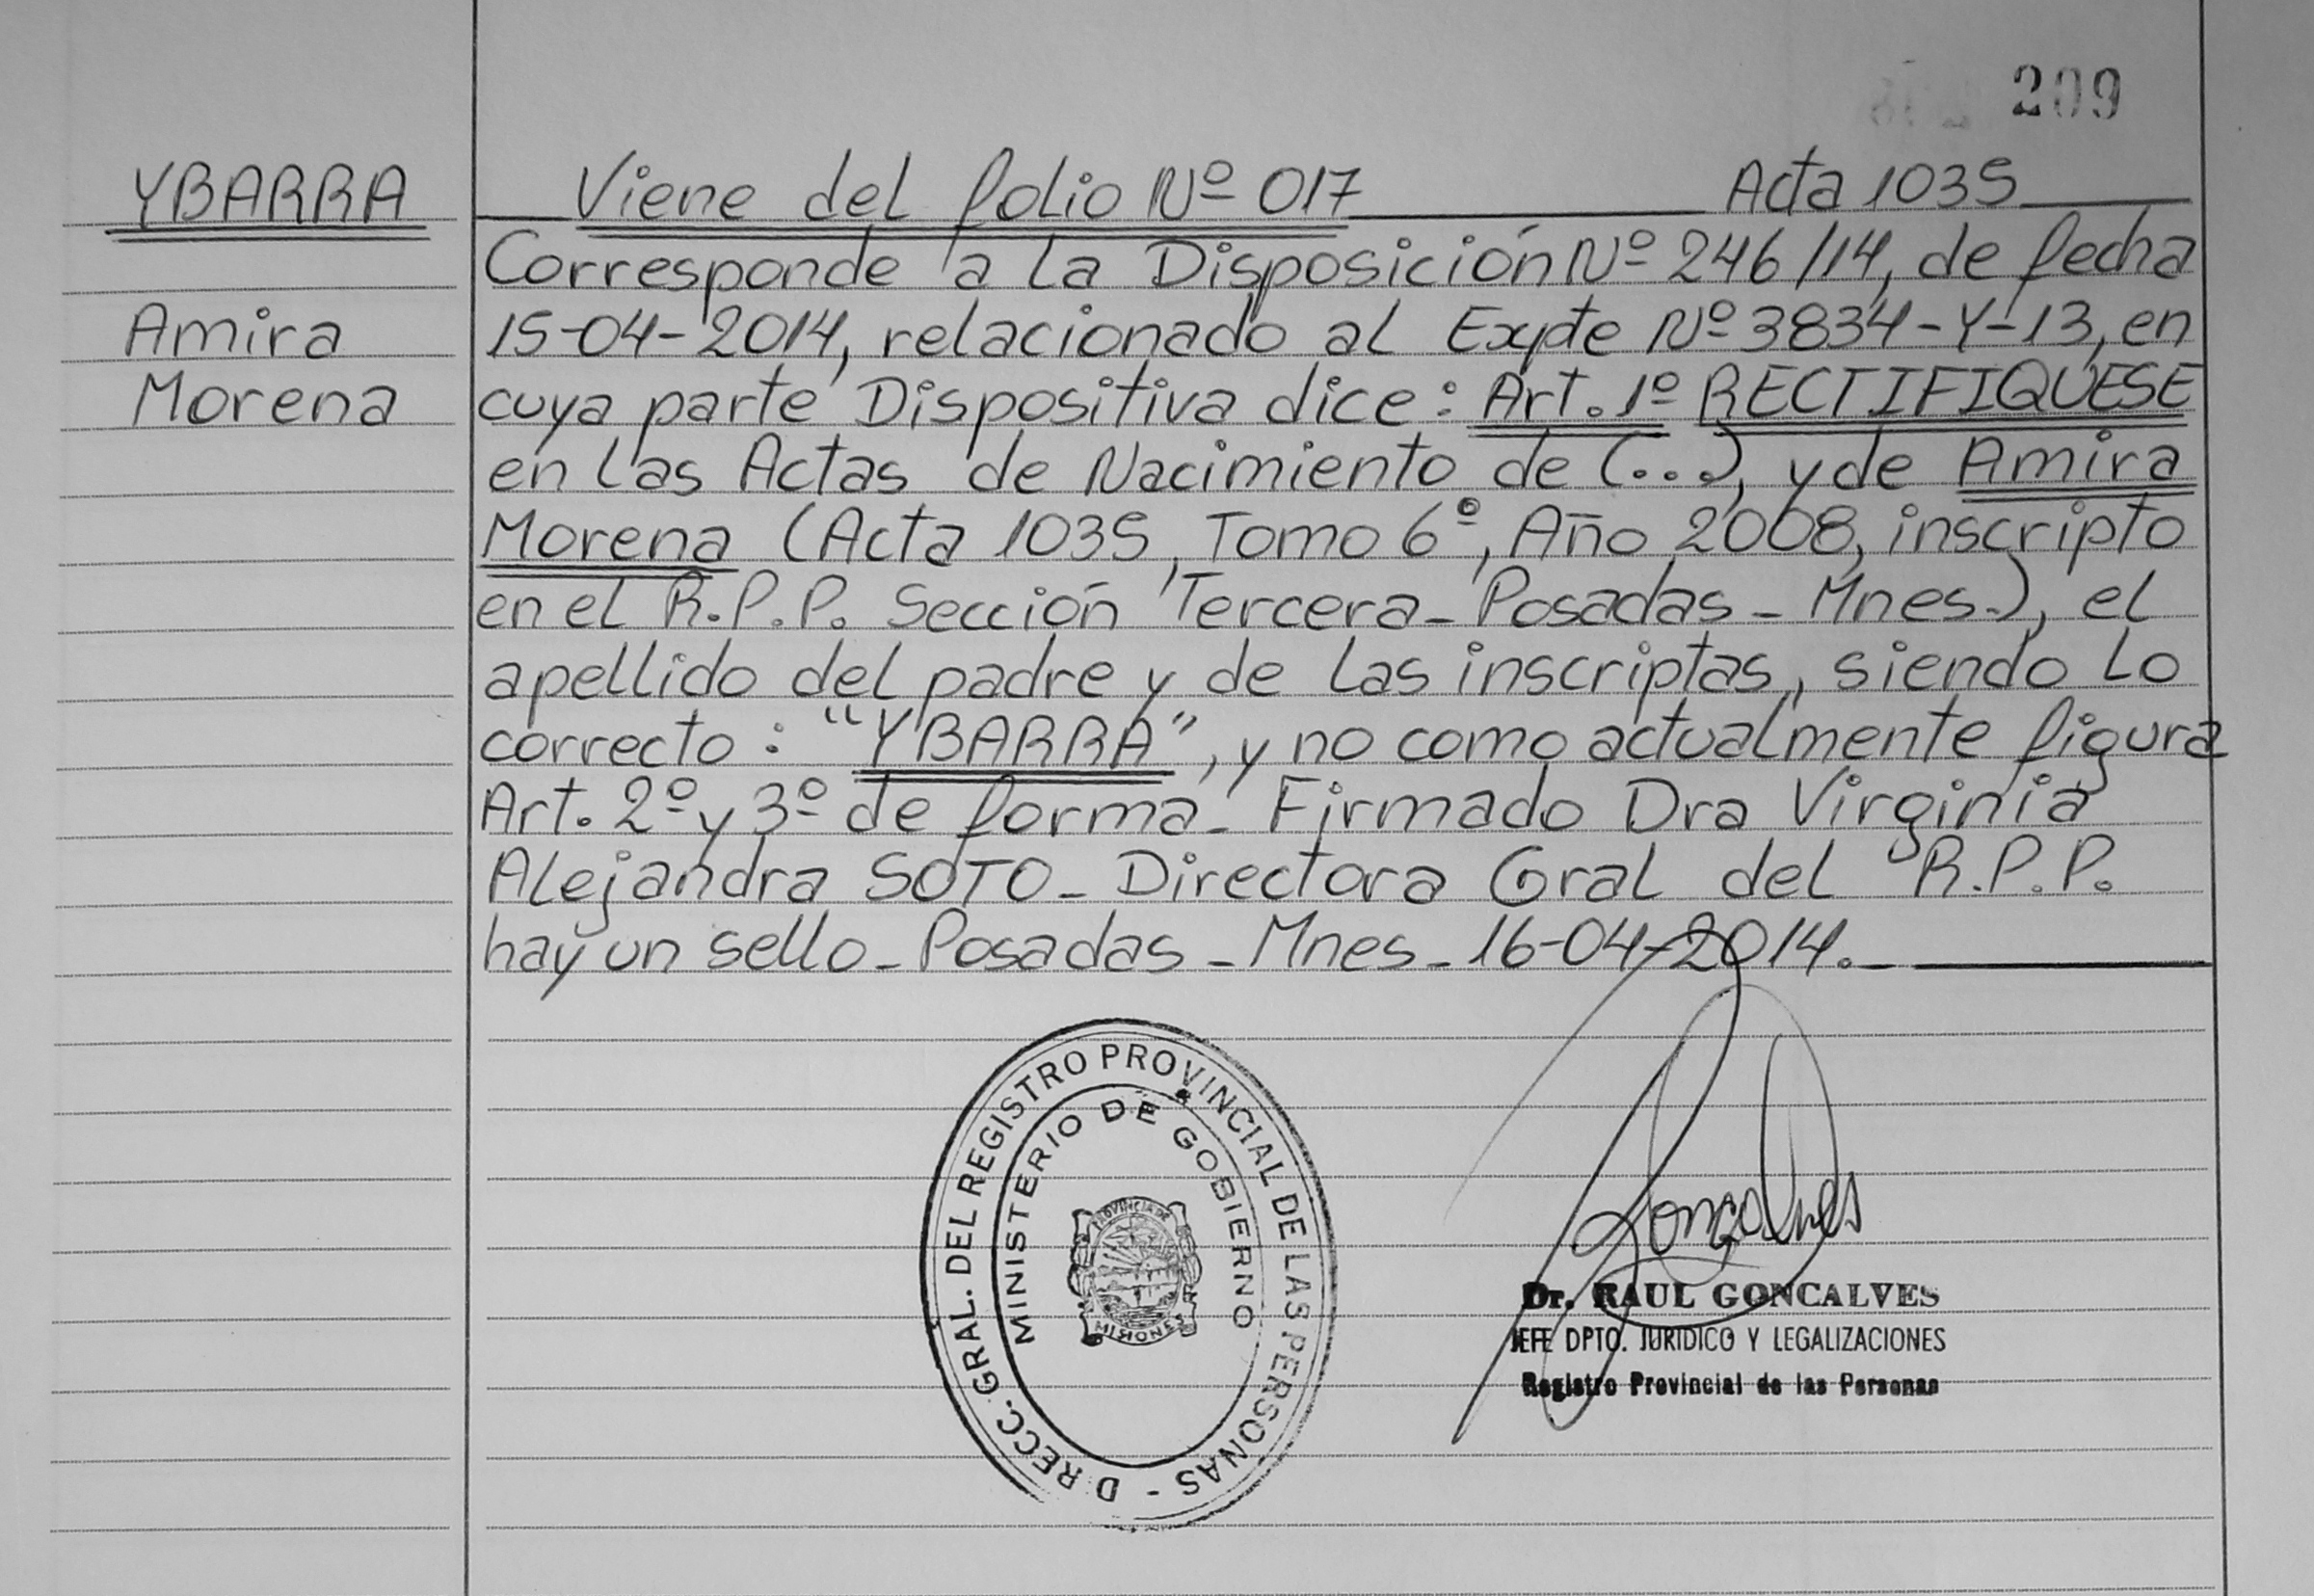 209
YBARRA
Amira
Morena
Viene del folio Nº 017 Acta 1035
Corresponde a la Disposición Nº 246/14, de fecha
15-04-2014, relacionado al Expte Nº 3834-Y-13, en
cuya parte Dispositiva dice: Art. 1º RECTIFIQUESE
en las Actas de Nacimiento de (...), y de Amira
Morena (Acta 1035, Tomo 6º, Año 2008, inscripto
en el R.P.P. Sección Tercera - Posadas - Mnes.), el
apellido del padre y de las inscriptas, siendo lo
correcto: "YBARRA", y no como actualmente figura
Art. 2º y 3º de forma - Firmado Dra Virginia
Alejandra SOTO - Directora Gral del R.P.P.
hay un sello - Posadas - Mnes - 16-04-2014.-
D RECC. GRAL. DEL REGISTRO PROVINCIAL DE LAS PERSONAS -
MINISTERIO DE GOBIERNO
PROVINCIA DE
MISIONES
Goncalves
Dr. RAUL GONCALVES
JEFE DPTO. JURIDICO Y LEGALIZACIONES
Registro Provincial de las Personas